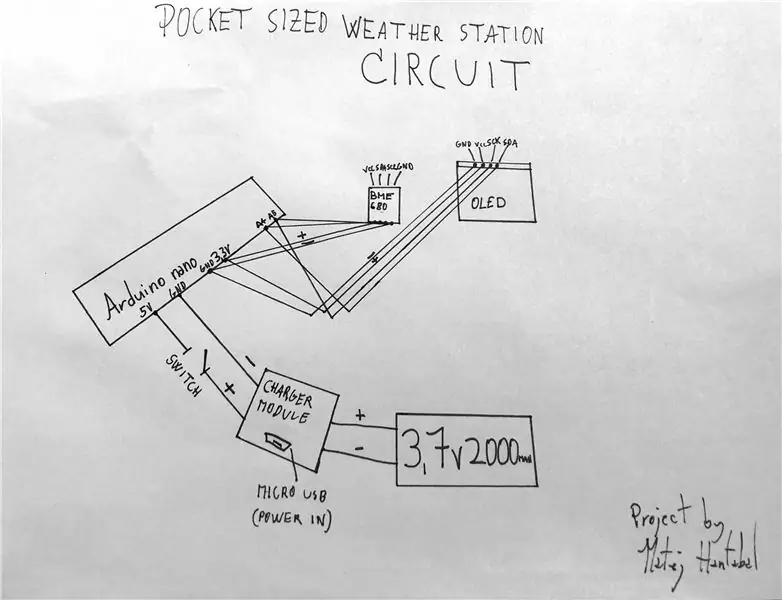 POCKET SIZED WEATHER STATION
CIRCUIT
VCC SDA SCL GND
BME
680
GND VCC SCK SDA
OLED
Arduino nano
5V
GND
GND
3,3V
A4
SWITCH
+
-
CHARGER
MODULE
MICRO USB
(POWER IN)
+
-
3,7V 2000mAh
Project by
Matej